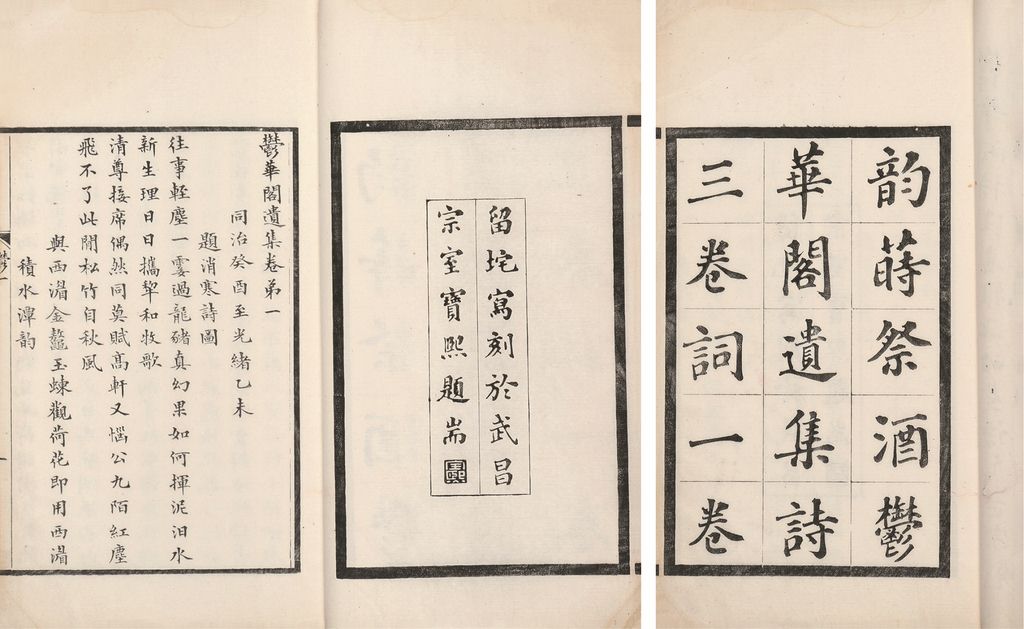 韵蒔祭酒鬱
華閣遺集詩
三卷詞一卷
留垞寫刻於武昌
宗室寶熙題耑
鬱華閣遺集卷弟一
同治癸酉至光緒乙未
題消寒詩圖
往事輕塵一霎過龍豬真幻果如何揮泥汨水
新生理日日攜犂和牧歌
清尊接席偶然同莫賦高軒又惱公九陌紅塵
飛不了此間松竹自秋風
與西涽金鼇玉蝀觀荷花即用西涽
積水潭韵